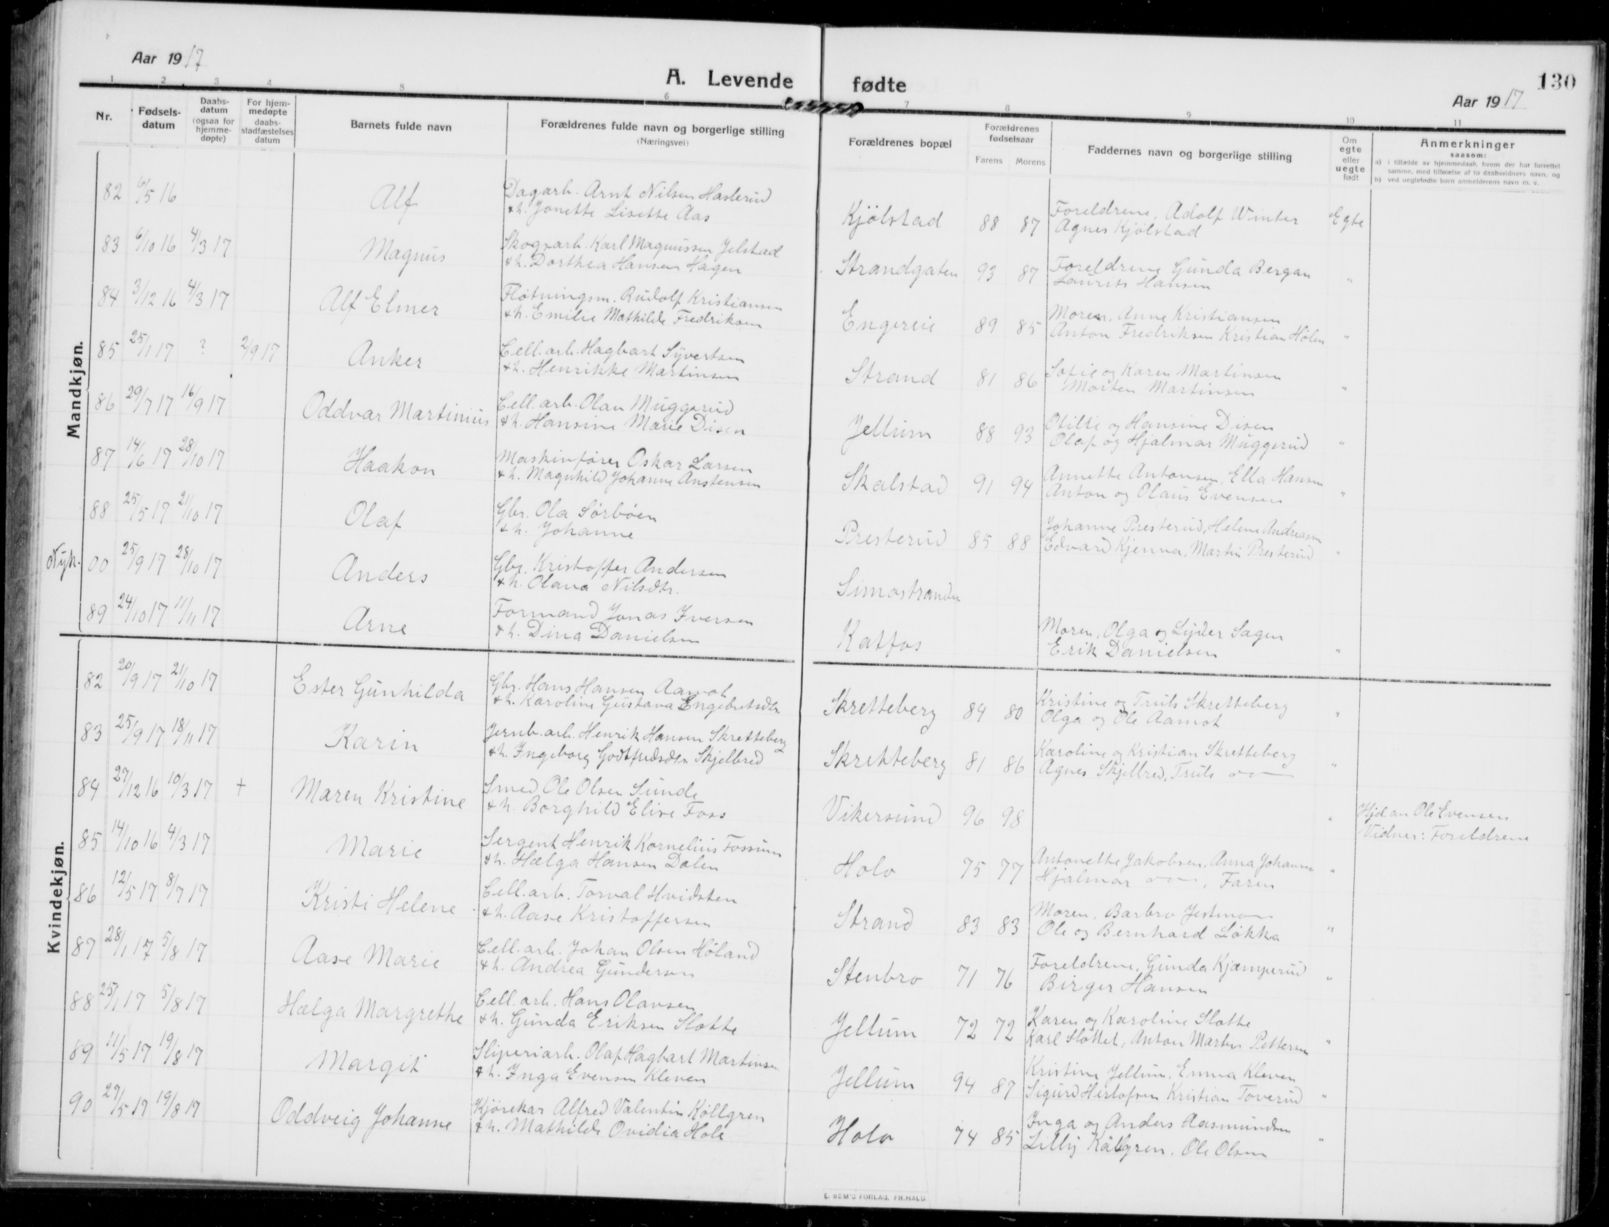 Aar 1917
A. Levende fødte
130
Aar 1917
1 2 3 4 5 6 7 8 9 10 11
Nr.
Fødsels-datum
Daabs-datum (ogsaa for hjemme-døpte)
For hjem-medøpte daabs-stadfæstelses datum
Barnets fulde navn
Forældrenes fulde navn og borgerlige stilling (Næringsvei)
Forældrenes bopæl
Forældrenes fødselsaar
Farens Morens
Faddernes navn og borgerlige stilling
Om egte eller uegte født
Anmerkninger saasom:
a) i tilfælde av hjemmedaab, hvem der har forrettet samme, med tilføielse af to daabsvidners navn, og
b) ved uegtefødte barn anmelderens navn m. v.
Mandkjøn.
82 6/5 16 Alf Dagarb. Arnt Nilsen Haslerud Kjölstad 88 87 Foreldrene, Adolf Winter Egte
+ h. Jonette Lisette Aas Agnes Kjölstad
83 6/10 16 4/3 17 Magnus Skogsarb. Karl Magnussen Jelstad Strandgaten 93 87 Foreldrene Gunda Bergan "
+ h. Dorthea Hansen Hagen Laurits Hansen
84 3/12 16 4/3 17 Alf Elmer Fløtningsm. Rudolf Kristiansen Engereie 89 85 Moren, Anne Kristiansen
+ h. Emilie Mathilde Fredriksen Anton Fredriksen Kristian Holen "
85 25/1 17 ? 2/9 17 Anker Cell. arb. Hagbart Syvertsen Strand 81 86 Sofie og Karen Martinsen
+ h. Henrikke Martinsen Morten Martinsen "
86 29/7 17 16/9 17 Oddvar Martinius Cell. arb. Olan Muggerud Jellum 88 93 Otilie og Hansine Disen
+ h. Hansine Marie Disen Olaf og Hjalmar Muggerud "
87 14/6 17 28/10 17 Haakon Maskinfører Oskar Larsen Skalstad 91 94 Annette Antonsen, Ella Hansen
+ h. Magnhild Johanne Anstensen Anton og Olaus Evensen "
88 25/5 17 21/10 17 Olaf Gbr. Ola Sörböen Presterud 85 88 Johanne Presterud, Helene Andreasen
+ h. Johanne Edvard Kjenna, Martin Presterud "
Nyk. 00 25/9 17 28/10 17 Anders Gbr. Kristoffer Andersen Simostranden
+ h. Olava Nilsdtr.
89 24/10 17 11/11 17 Arne Formand Jonas Iversen Katfos Moren, Olga og Lyder Sagen
+ h. Dina Danielsen Erik Danielsen "
Kvindekjøn.
82 20/9 17 21/10 17 Ester Gunhilda Gbr. Hans Hansen Aamot Skretteberg 84 80 Kristine og Truls Skretteberg
+ h. Karoline Gustava Engebretsdtr Olga og Ole Aamot "
83 25/9 17 18/11 17 Karin Jernb. arb. Henrik Hansen Skretteberg Skretteberg 81 86 Karoline og Kristian Skretteberg
+ h. Ingeborg Godtfredsdtr Skjelbred Agnes Skjelbred, Truls "
84 27/12 16 10/3 17 + Maren Kristine Smed Ole Olsen Sunde Vikersund 96 98 " Hjd av Ole Evensen
+ h. Borghild Elise Foss Vidner: Foreldrene
85 14/10 16 4/3 17 Marie Sergent Henrik Kornelius Fossum Holo 75 77 Antonette Jakobsen, Anna Johanne "
+ h. Hælga Hansen Dalen Hjalmar , Faren
86 12/5 17 8/7 17 Kristi Helene Cell. arb. Torval Hvidsten Strand 83 83 Moren, Barbro
+ h. Aase Kristoffersen Ole og Bernhard Løkka "
87 28/1 17 5/8 17 Aase Marie Cell. arb. Johan Olsen Høland Stenbro 71 76 Foreldrene, Gunda Kjæmperud
+ h. Andrea Gundersen Birger Hansen "
88 25/1 17 5/8 17 Hælga Margrethe Cell. arb. Hans Olavsen Jellum 72 72 Karen og Karoline Slotte
+ h. Gunda Eriksen Slotte Karl Slottet, Anton Martin Pettersen "
89 11/5 17 19/8 17 Margit Sliperiarb. Olaf Hagbart Martinsen Jellum 94 87 Kristine Jellum, Emma Kleven
+ h. Inga Evensen Kleven Sigurd Herlofsen Kristian Toverud "
90 27/5 17 19/8 17 Oddveig Johanne Kjørekar Alfred Valentin Köllgren Holo 74 85 Inga og Anders Aasmunden "
+ h. Mathilde Ovidia Hole Lilly Kölgren. Ole Olsen